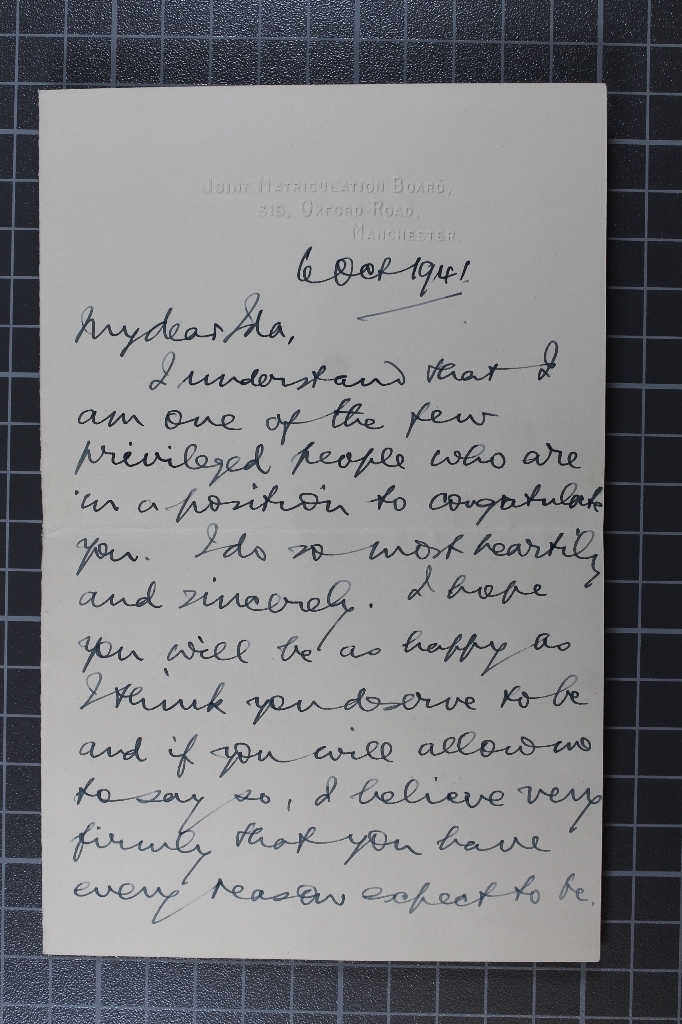 JOINT MATRICULATION BOARD,
315, OXFORD ROAD,
MANCHESTER.
6 Oct 1941
My dear Ida,
I understand that I
am one of the few
privileged people who are
in a position to congatulate
you. I do so most heartily
and sincerely. I hope
you will be as happy as
I think you deserve to be
and if you will allow me
to say so, I believe very
firmly that you have
every reason expect to be.